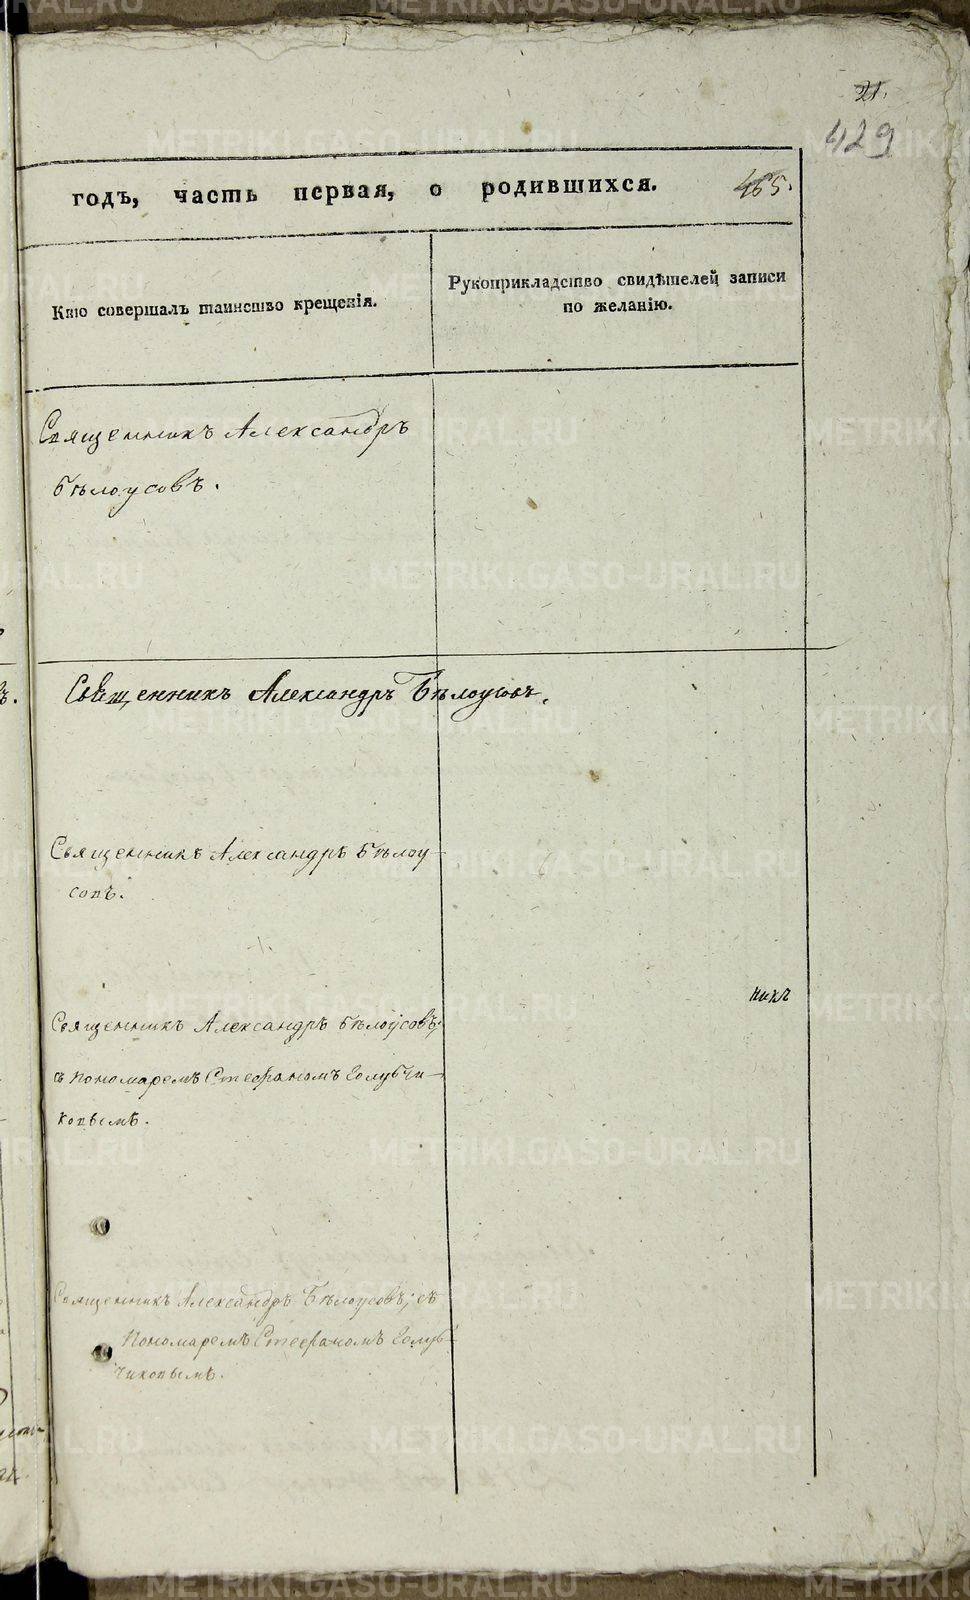 21.
429
годъ, часть первая, о родившихся.
465.
Кто совершалъ таинство крещенія.
Рукоприкладство свидѣтелей записи
по желанію.
Священникъ Александръ
Бѣлоусовъ.
Священникъ Александръ Бѣлоусовъ.
Священникъ Александръ Бѣлоу-
совъ.
никъ
Священникъ Александръ Бѣлоусовъ;
съ пономаремъ Стефаномъ Голубчи-
ковымъ.
Священникъ Александръ Бѣлоусовъ; съ
Пономаремъ Стефаномъ Голуб-
чиковымъ.
METRIKI.GASO-URAL.RU